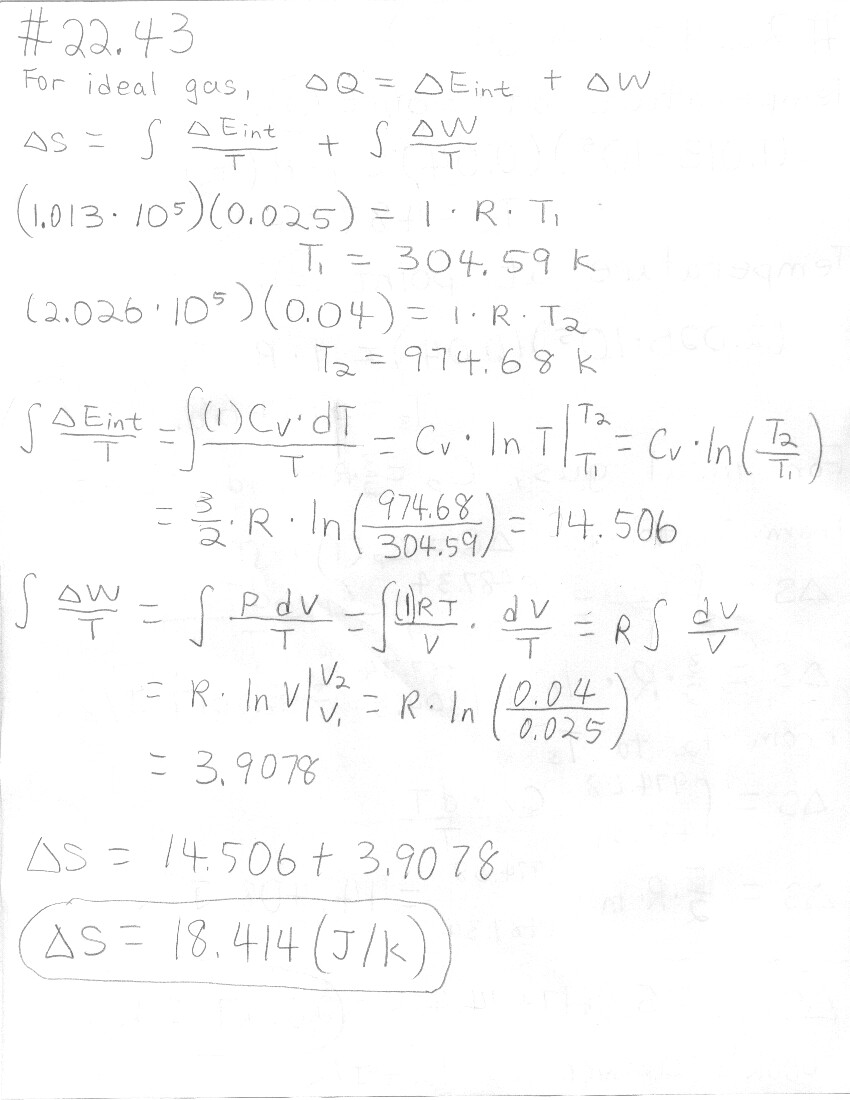 #22.43
For ideal gas, ΔQ = ΔEint + ΔW
ΔS = ∫ ΔEint/T + ∫ ΔW/T
(1.013·10⁵)(0.025) = 1·R·T₁
T₁ = 304.59 k
(2.026·10⁵)(0.04) = 1·R·T₂
T₂ = 974.68 k
∫ ΔEint/T = ∫ (1)Cv·dT/T = Cv·ln T|T₂ T₁ = Cv·ln(T₂/T₁)
= 3/2·R·ln(974.68/304.59) = 14.506
∫ ΔW/T = ∫ P dV/T = ∫ (1)RT/V · dV/T = R ∫ dV/V
= R·ln V|V₂ V₁ = R·ln(0.04/0.025)
= 3.9078
ΔS = 14.506 + 3.9078
ΔS = 18.414 (J/k)